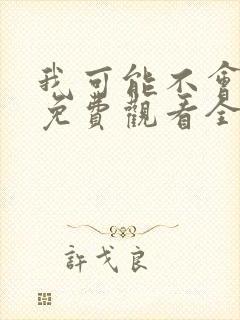 我可能不會
免費觀看全
許戈良